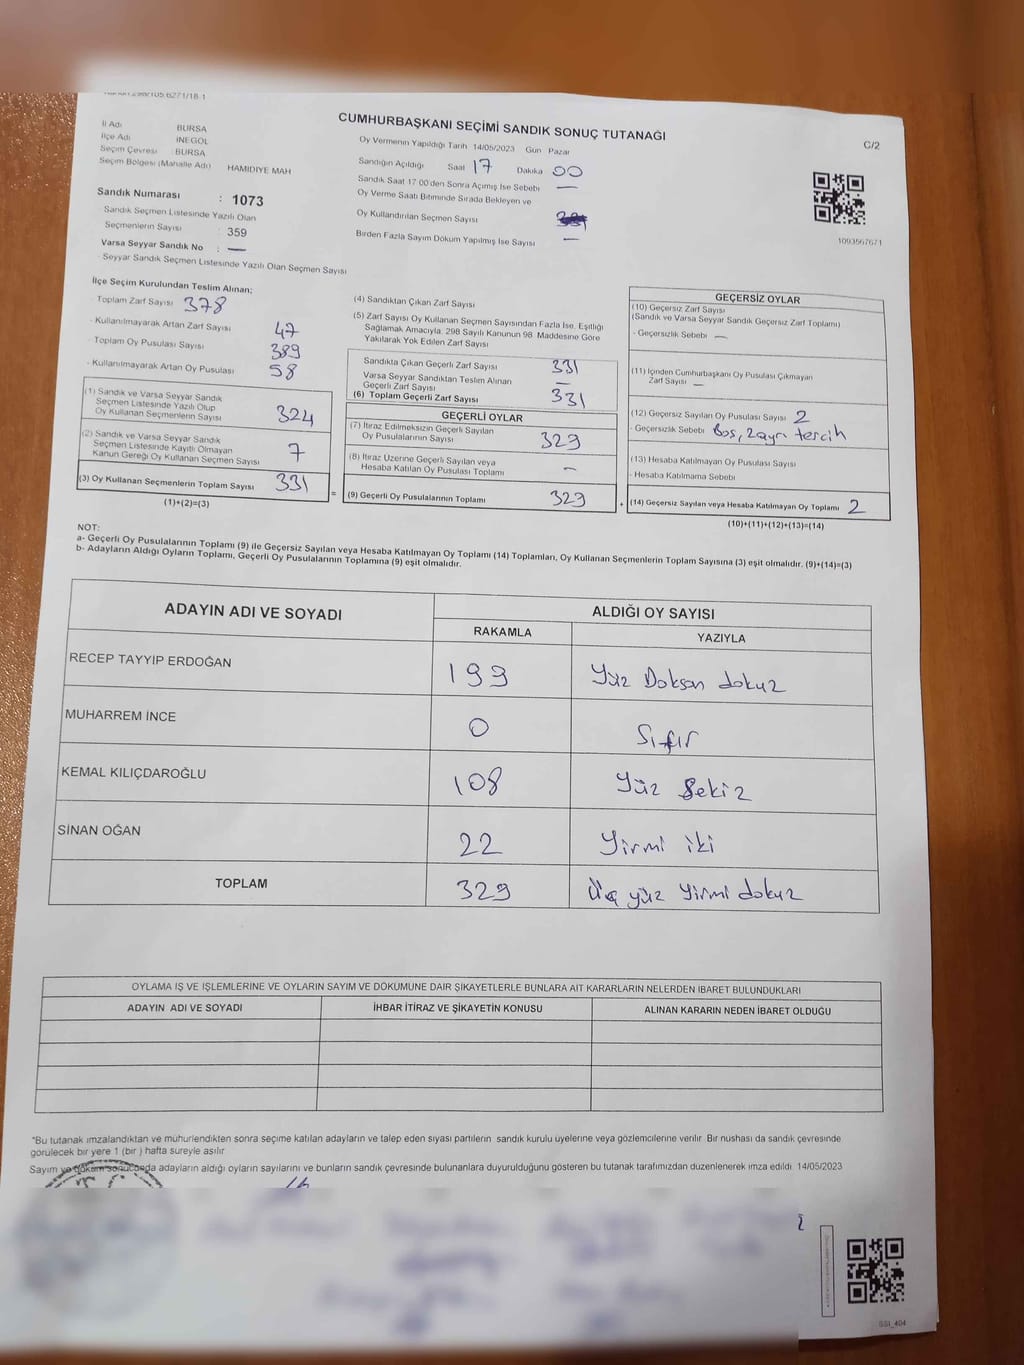 CUMHURBAŞKANI SEÇİMİ SANDIK SONUÇ TUTANAĞI
C/2
İl Adı BURSA
İlçe Adı İNEGÖL
Seçim Çevresi BURSA
Seçim Bölgesi (Mahalle Adı) HAMİDİYE MAH
Sandık Numarası : 1073
Sandık Seçmen Listesinde Yazılı Olan
Seçmenlerin Sayısı : 359
Varsa Seyyar Sandık No : —
- Seyyar Sandık Seçmen Listesinde Yazılı Olan Seçmen Sayısı
Oy Vermenin Yapıldığı Tarih 14/05/2023 Gün Pazar
Sandığın Açıldığı Saat 17 Dakika 00
Sandık Saat 17 00'den Sonra Açımış İse Sebebi —
Oy Verme Saati Bitiminde Sırada Bekleyen ve
Oy Kullandırılan Seçmen Sayısı
Birden Fazla Sayım Döküm Yapılmış İse Sayısı —
1093567671
İlçe Seçim Kurulundan Teslim Alınan;
- Toplam Zarf Sayısı 378
- Kullanılmayarak Artan Zarf Sayısı 47
- Toplam Oy Pusulası Sayısı 389
- Kullanılmayarak Artan Oy Pusulası 58
(1) Sandık ve Varsa Seyyar Sandık
Seçmen Listesinde Yazılı Olup
Oy Kullanan Seçmenlerin Sayısı 324
(2) Sandık ve Varsa Seyyar Sandık
Seçmen Listesinde Kayıtlı Olmayan
Kanun Gereği Oy Kullanan Seçmen Sayısı 7
(3) Oy Kullanan Seçmenlerin Toplam Sayısı 331
(1)+(2)=(3)
=
(4) Sandıktan Çıkan Zarf Sayısı
(5) Zarf Sayısı Oy Kullanan Seçmen Sayısından Fazla İse, Eşitliği
Sağlamak Amacıyla, 298 Sayılı Kanunun 98. Maddesine Göre
Yakılarak Yok Edilen Zarf Sayısı
Sandıkta Çıkan Geçerli Zarf Sayısı 331
Varsa Seyyar Sandıktan Teslim Alınan
Geçerli Zarf Sayısı —
(6) Toplam Geçerli Zarf Sayısı 331
GEÇERLİ OYLAR
(7) İtiraz Edilmeksizin Geçerli Sayılan
Oy Pusulalarının Sayısı 329
(8) İtiraz Üzerine Geçerli Sayılan veya
Hesaba Katılan Oy Pusulası Toplamı —
(9) Geçerli Oy Pusulalarının Toplamı 329
+
GEÇERSİZ OYLAR
(10) Geçersiz Zarf Sayısı
(Sandık ve Varsa Seyyar Sandık Geçersiz Zarf Toplamı)
- Geçersizlik Sebebi —
(11) İçinden Cumhurbaşkanı Oy Pusulası Çıkmayan
Zarf Sayısı —
(12) Geçersiz Sayılan Oy Pusulası Sayısı 2
- Geçersizlik Sebebi Boş, 2 ayrı tercih
(13) Hesaba Katılmayan Oy Pusulası Sayısı
- Hesaba Katılmama Sebebi
(14) Geçersiz Sayılan veya Hesaba Katılmayan Oy Toplamı 2
(10)+(11)+(12)+(13)=(14)
NOT:
a- Geçerli Oy Pusulalarının Toplamı (9) ile Geçersiz Sayılan veya Hesaba Katılmayan Oy Toplamı (14) Toplamları, Oy Kullanan Seçmenlerin Toplam Sayısına (3) eşit olmalıdır. (9)+(14)=(3)
b- Adayların Aldığı Oyların Toplamı, Geçerli Oy Pusulalarının Toplamına (9) eşit olmalıdır.
ADAYIN ADI VE SOYADI ALDIĞI OY SAYISI
RAKAMLA YAZIYLA
RECEP TAYYİP ERDOĞAN 199 Yüz Doksan dokuz
MUHARREM İNCE 0 Sıfır
KEMAL KILIÇDAROĞLU 108 Yüz Sekiz
SİNAN OĞAN 22 Yirmi iki
TOPLAM 329 Üç yüz Yirmi dokuz
OYLAMA İŞ VE İŞLEMLERİNE VE OYLARIN SAYIM VE DÖKÜMÜNE DAİR ŞİKAYETLERLE BUNLARA AİT KARARLARIN NELERDEN İBARET BULUNDUKLARI
ADAYIN ADI VE SOYADI İHBAR İTİRAZ VE ŞİKAYETİN KONUSU ALINAN KARARIN NEDEN İBARET OLDUĞU
*Bu tutanak imzalandıktan ve mühürlendikten sonra seçime katılan adayların ve talep eden siyasi partilerin sandık kurulu üyelerine veya gözlemcilerine verilir Bir nüshası da sandık çevresinde
görülecek bir yere 1 (bir ) hafta süreyle asılır
Sayım ve döküm sonucunda adayların aldığı oyların sayılarını ve bunların sandık çevresinde bulunanlara duyurulduğunu gösteren bu tutanak tarafımızdan düzenlenerek imza edildi. 14/05/2023
SSI_404